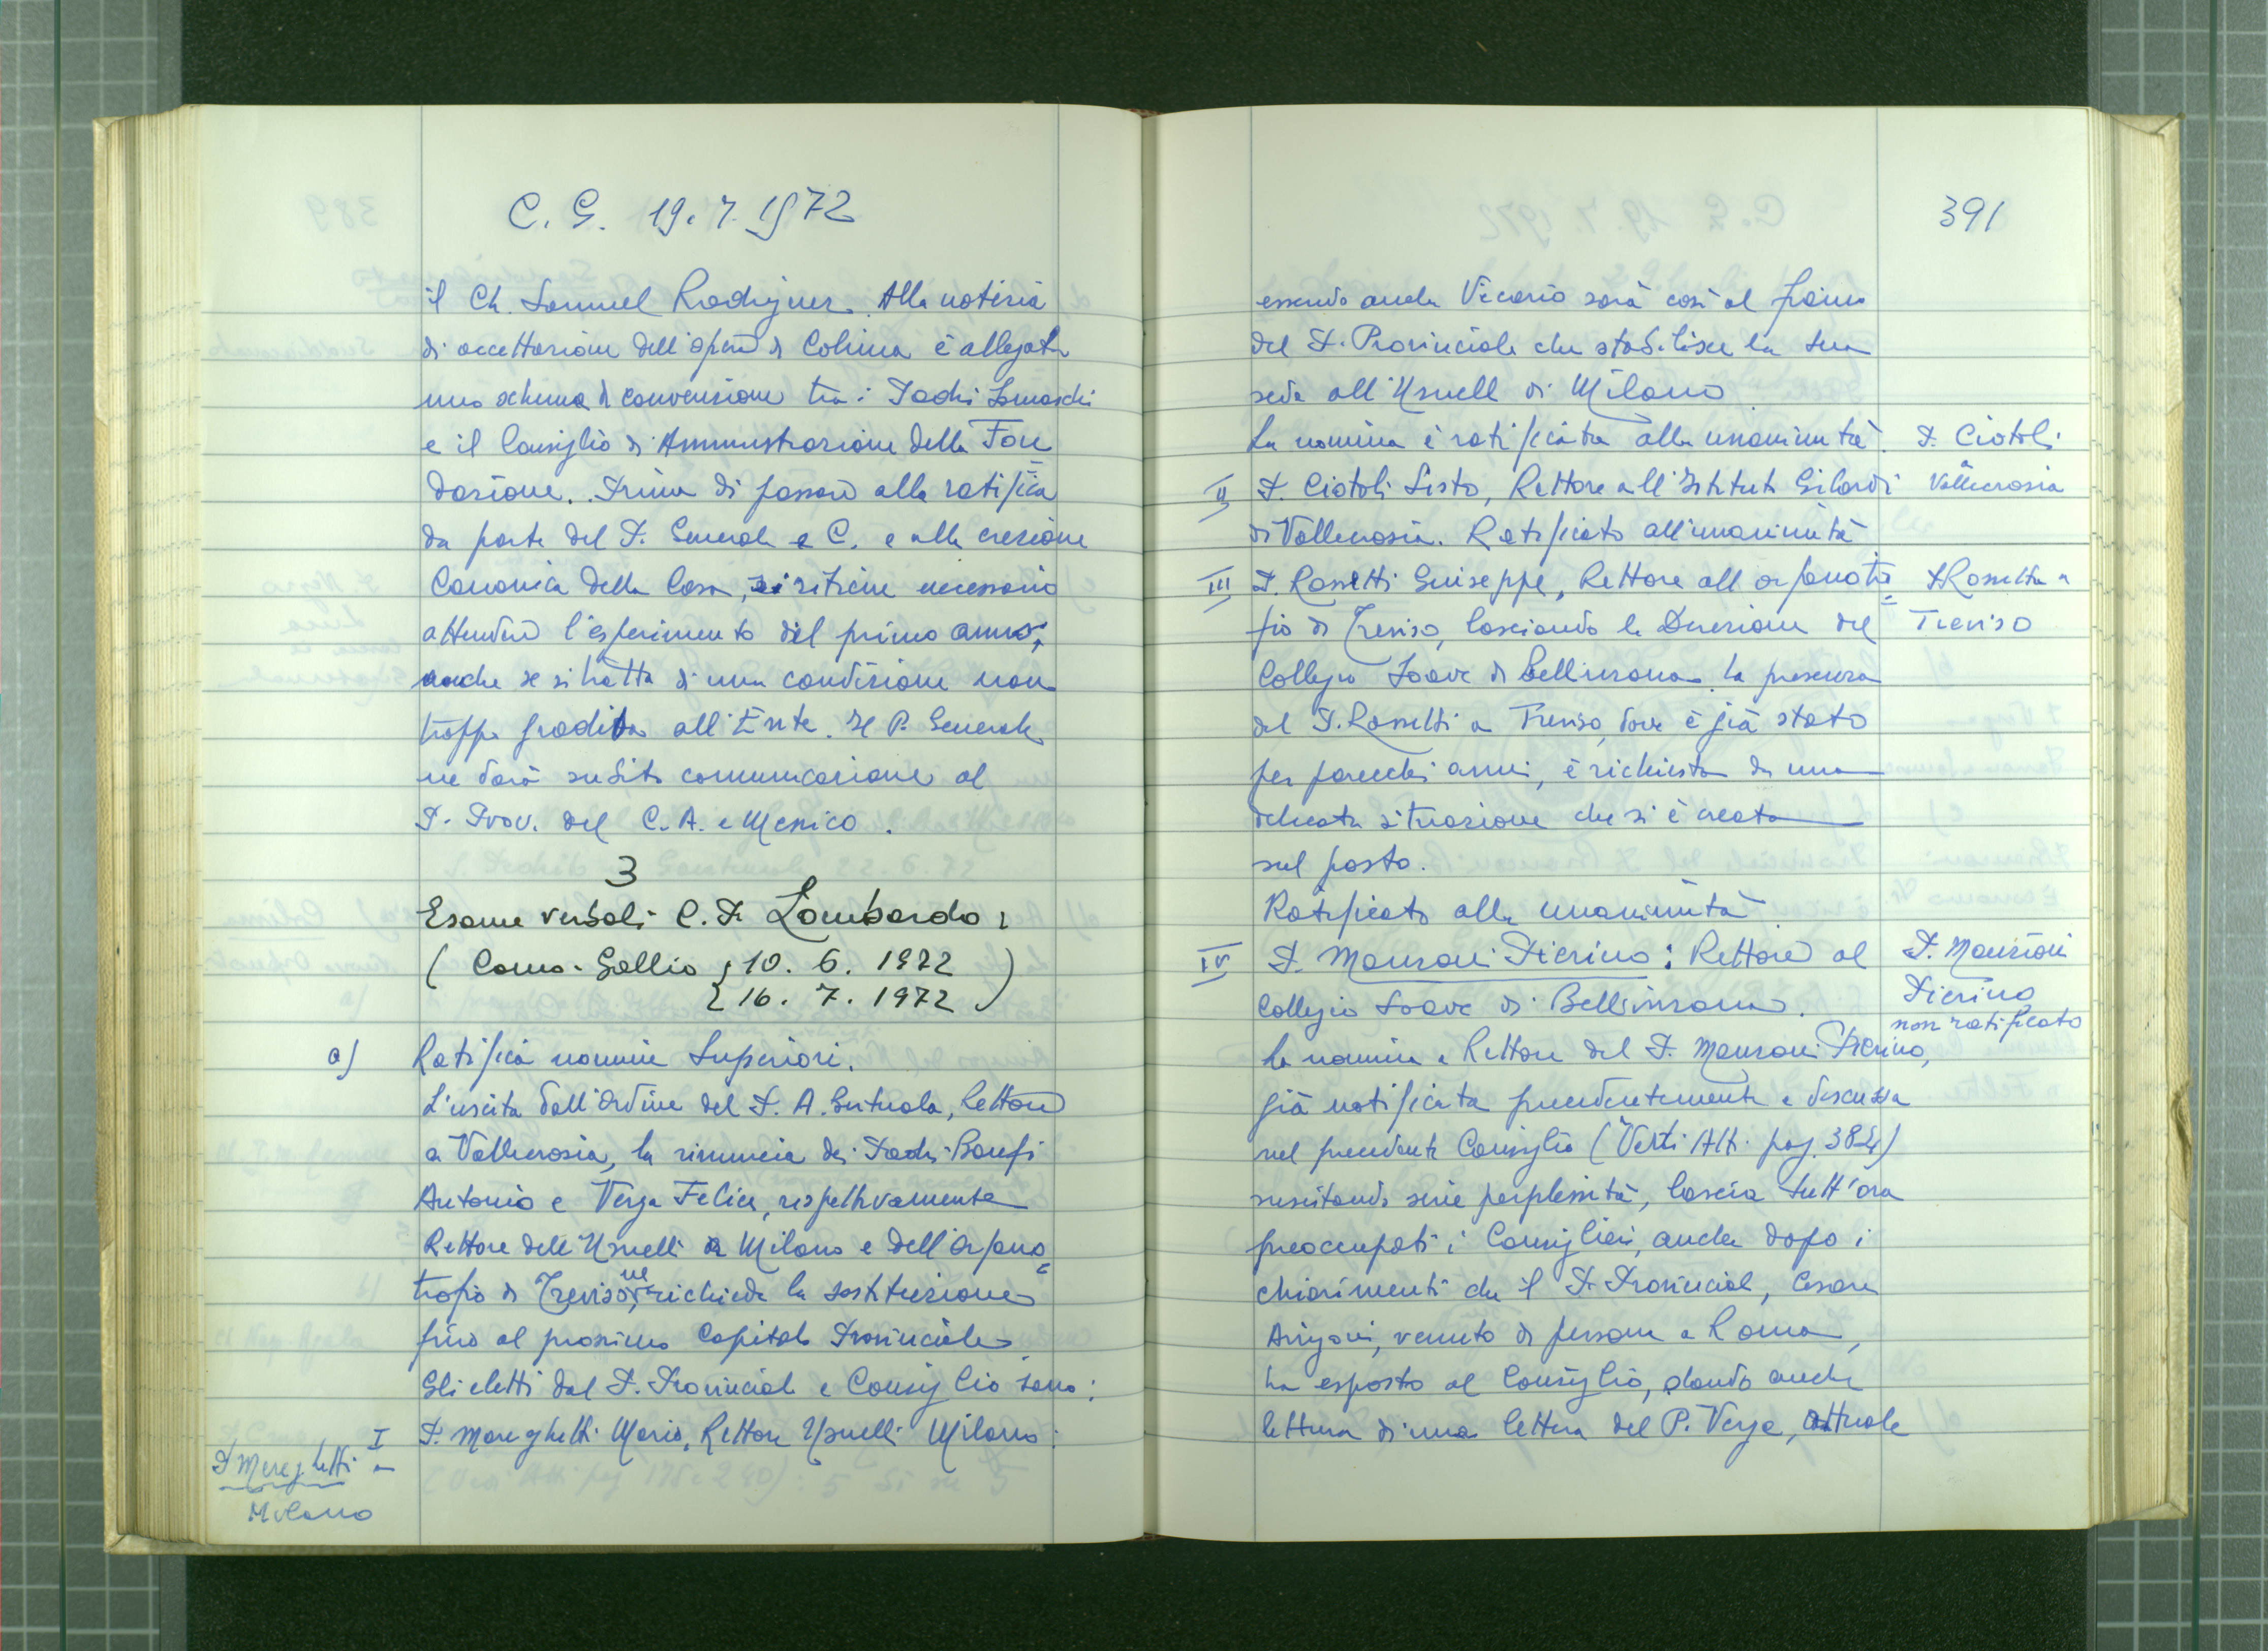 C. G. 19. 7. 1972
il Ch. Samuel Rodriguez. Alla notizia
di accettazione dell'opera di Colima è allegato
uno schema di convenzione tra i Padri Somaschi
e il Consiglio di Amministrazione della Fon=
dazione. Prima di passare alla ratifica
da parte del P. Generale e C. e alla erezione
Canonica della Casa, si ritiene necessario
attendere l'esperimento del primo anno,
anche se si tratta di una condizione non
troppo gradita all'Ente. Il P. Generale
ne darà subito comunicazione al
P. Prov. del C. A. e Messico.
3
Esame verbali C. P. Lombardo:
(Como-Gallio { 10. 6. 1972
16. 7. 1972 )
a) Ratifica nomine Superiori.
L'uscita dall'Ordine del P. A. , Rettore
a Vallecrosia, la rinuncia dei Padri
Antonio e Verga Felice, rispettivamente
Rettore dell'Usuelli a Milano e dell'Orfano=
trofio di Treviso, ne richiede la sostituzione
fino al prossimo Capitolo Provinciale.
Gli eletti dal P. Provinciale e Consiglio sono:
I P. Mereghetti Mario, Rettore Usuelli Milano:
P. Mereghetti a
Milano
391
essendo anche Vicario sarà così al fianco
del P. Provinciale che stabilisce la sua
sede all'Usuell di Milano
La nomina è ratificata alla unanimità.
P. Ciotoli
a
Vallecrosia
II P. Ciotoli Sisto, Rettore all'Istituto Gilardi
di Vallecrosia. Ratificato all'unanimità
III P. Rossetti Giuseppe, Rettore all orfanotro=
P. Rossetti a
Treviso
fio di Treviso, lasciando la Direzione del
Collegio Soave di Bellinzona. La presenza
del P. Rossetti a Treviso, dove è già stato
per parecchi anni, è richiesta da una
delicata situazione che si è creata
sul posto.
Ratificato alla unanimità
IV P. Manzoni Pierino: Rettore al
P. Manzoni
Pierino
non ratificato
Collegio Soave di Bellinzona.
La nomina a Rettore del P. Manzoni Pierino,
già notificata precedentemente e discussa
nel precedente Consiglio (Verti Atti pag. 384)
suscitando serie perplessità, lascia tutt'ora
preoccupati i Consiglieri, anche dopo i
chiarimenti che il P. Provinciale, Cesare
Arrigoni, venuto di persona a Roma,
ha esposto al Consiglio, dando anche
lettura di una lettera del P. Verga, attuale